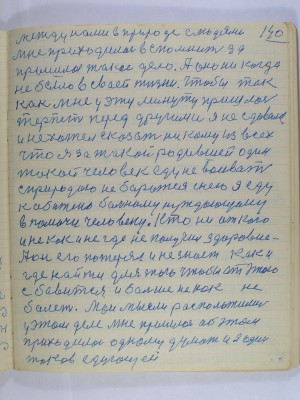 140
между нами в природе с людьми
мне приходилось вспомнить за
прошлое такое дело. А оно никогда
не было в своей жизни. Чтобы так
как мне у эту минуту пришлось
терпеть перед другими я не сдавался
и не хотел сказать никому из всех
что я за такой родившей один
такой человек еду не воевать
с природою не бороться с нею я еду
к больному нуждающему
в помочи человеку. Кто ни от кого
и некак и негде не получил здоровие
А он его потерял и не знает как и
где найти для того чтобы от этого
избавится и больше некак не
болеть. Мои мысли расположили
у этом деле мне пришлось об этом
приходилось одному думать и я один
таков едущий